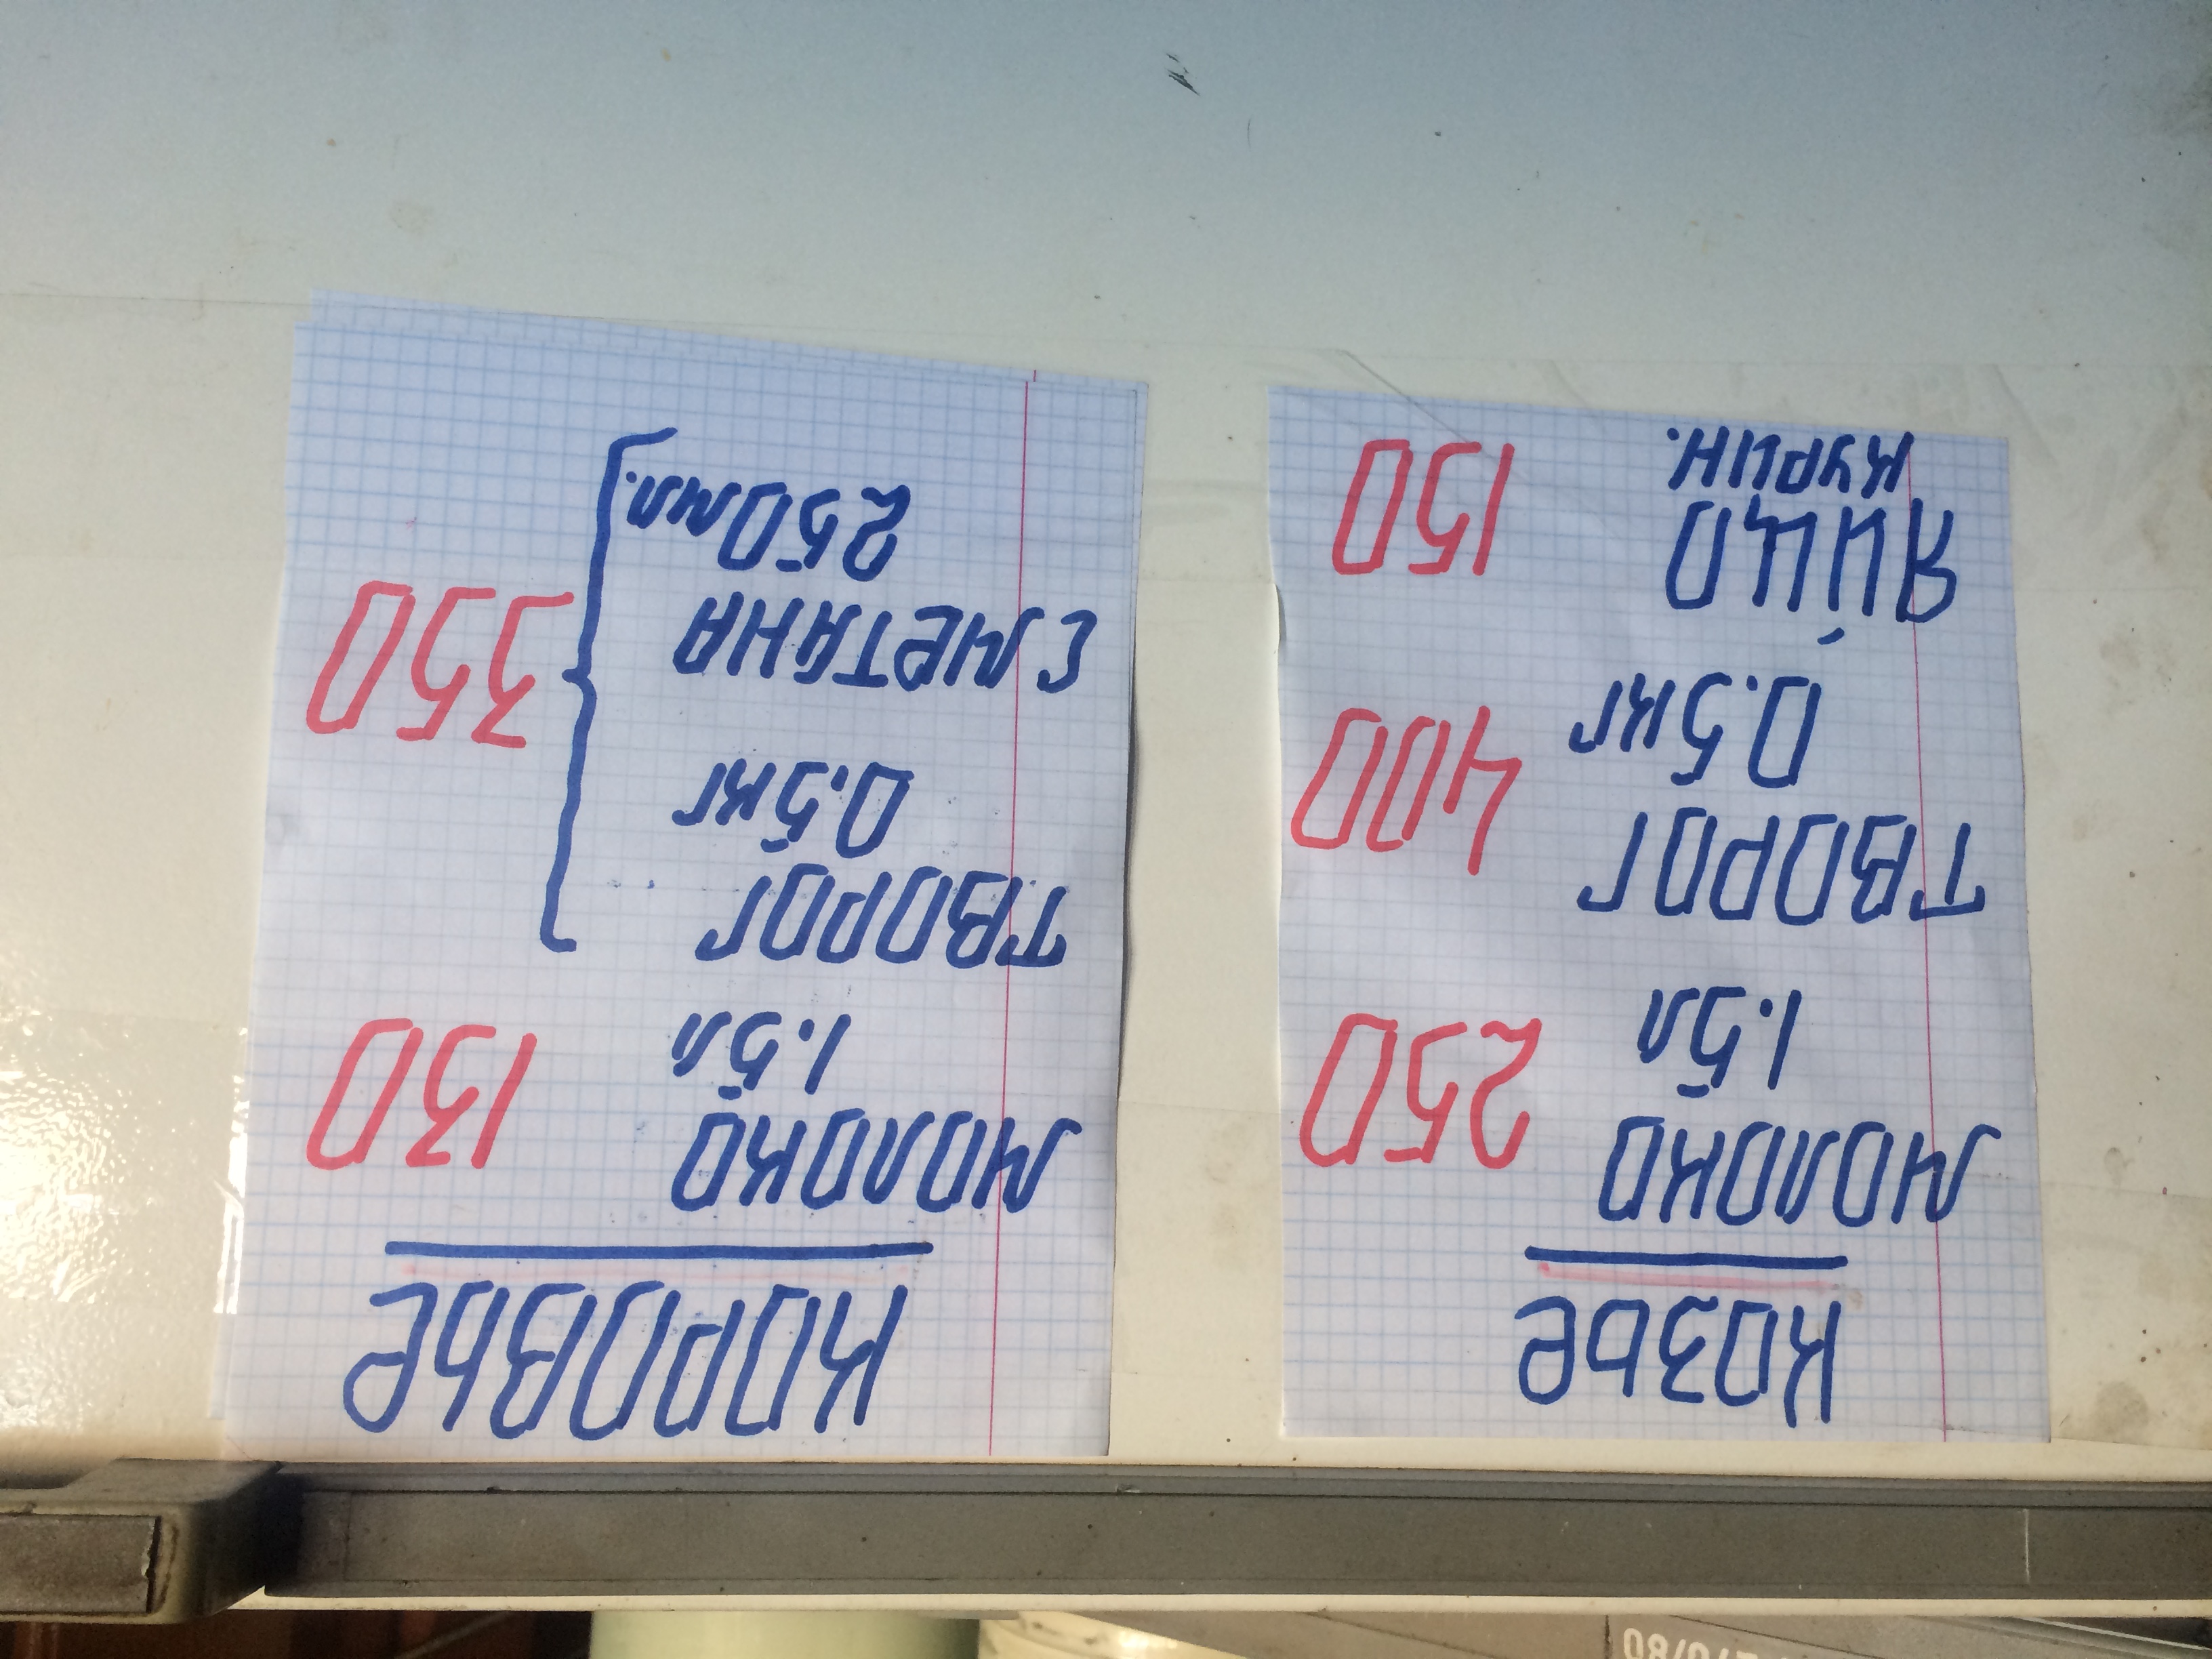 Козье
молоко
1.5л
250
творог
0.5кг
400
яйцо
курин.
150
коровье
молоко
1.5л
130
творог
0.5кг
сметана
250мл.
350